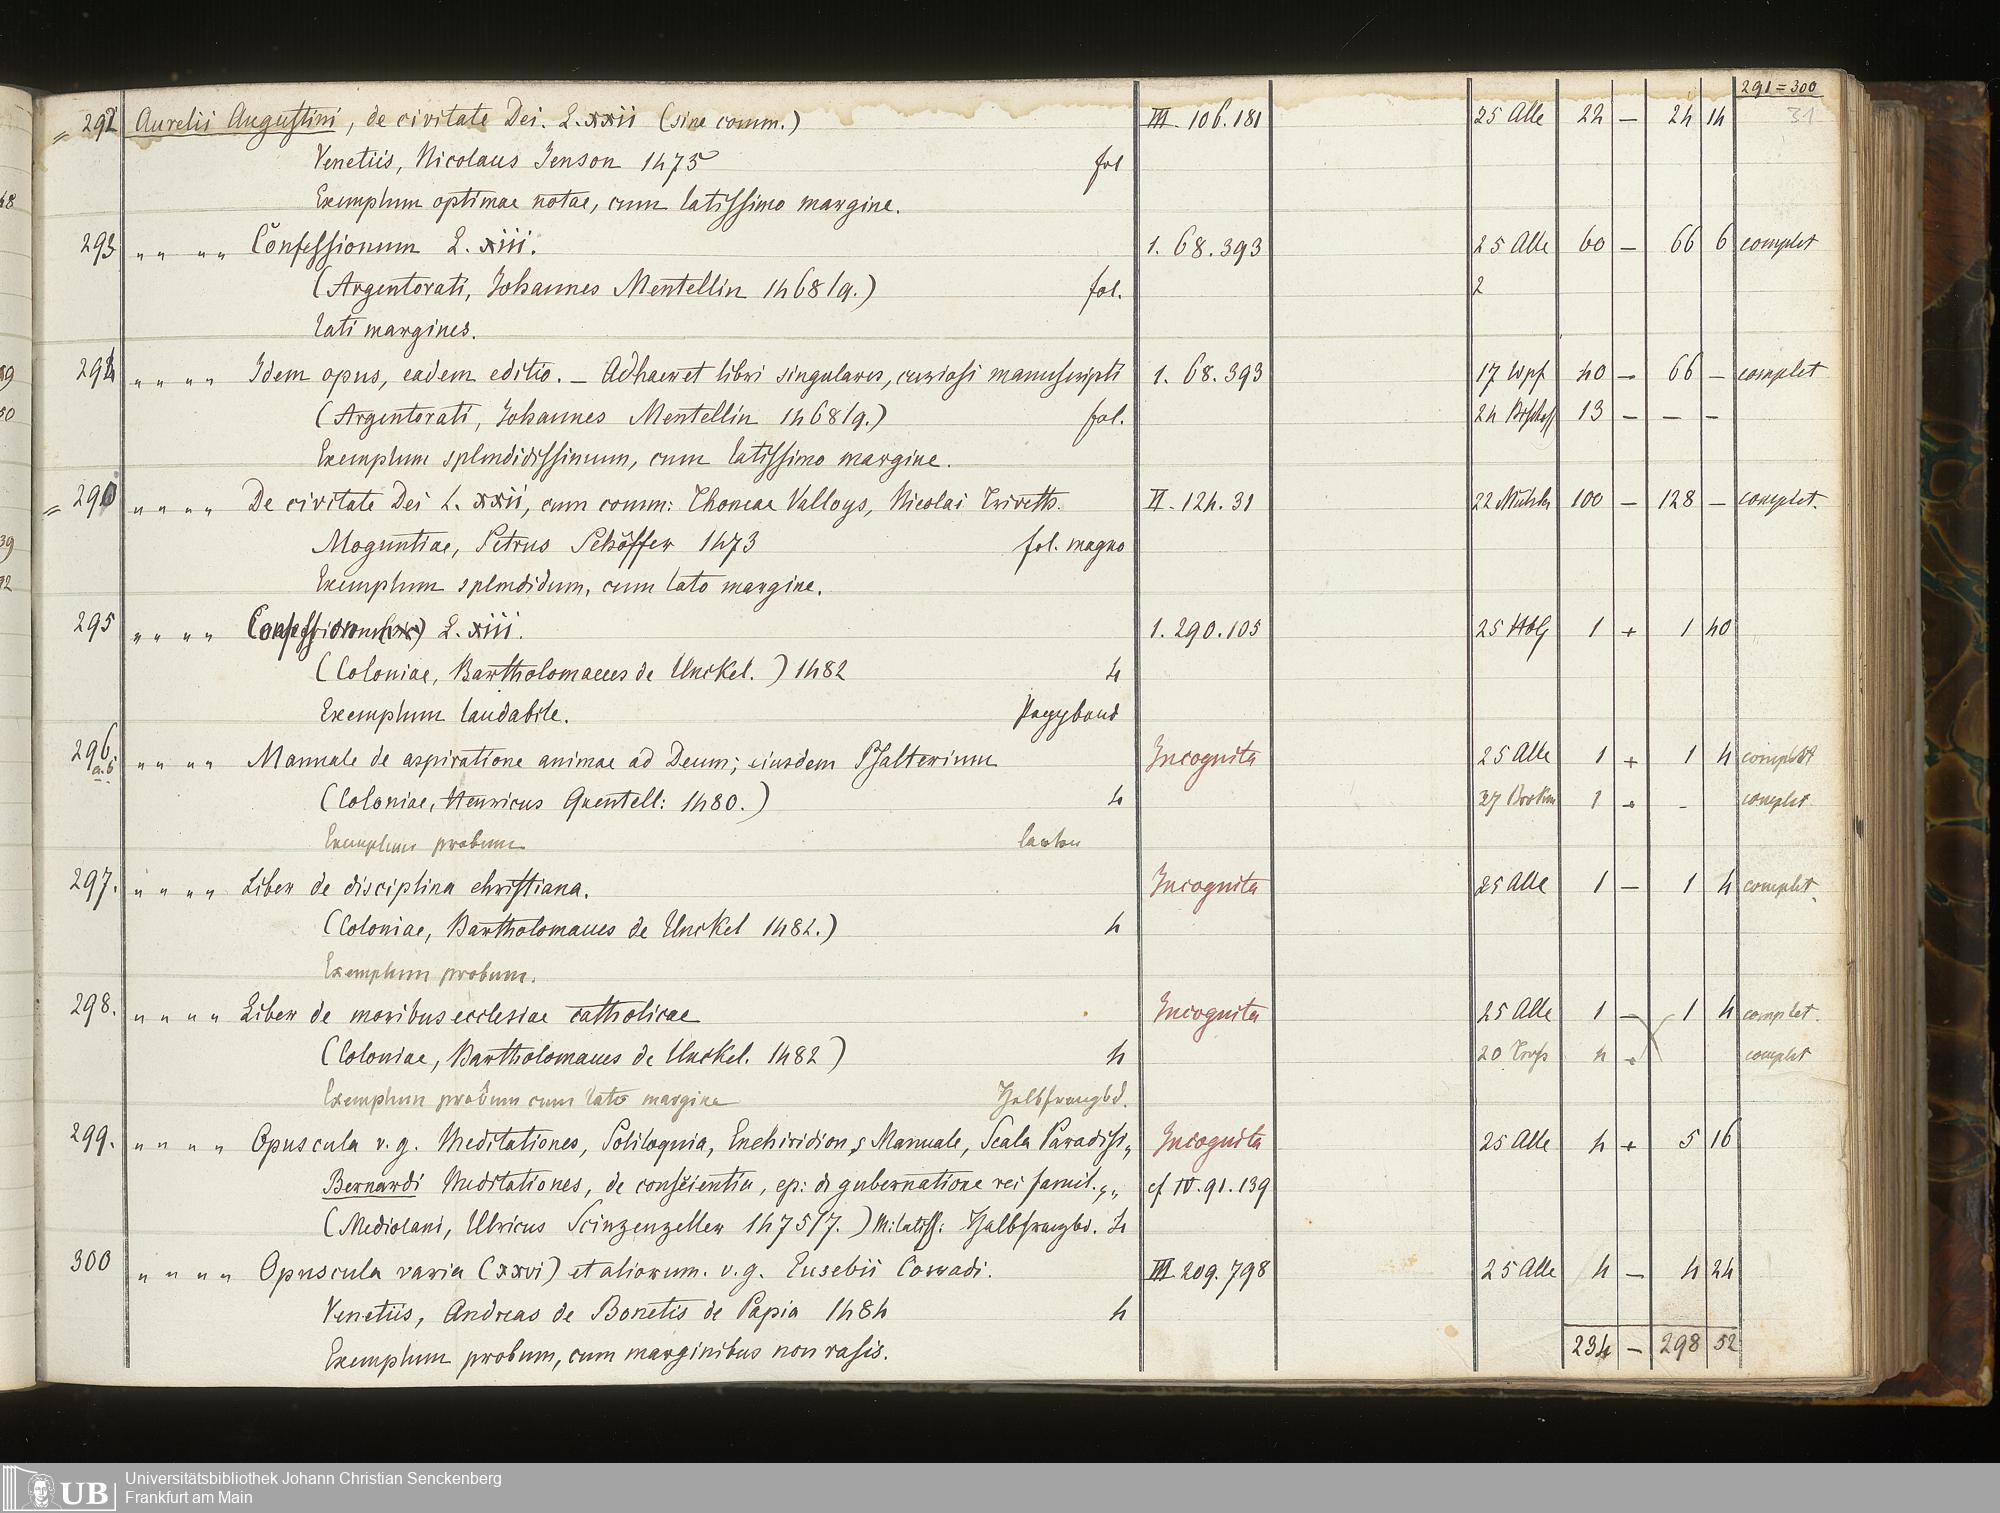 291=300
31
292 Aurelii Augustini, de civitate Dei. L. xxii (sine comm.) III. 106.181 25 Alle 22 — 24 14
Venetiis, Nicolaus Jenson 1475 fol
Exemplum optimae notae, cum latissimo margine.
293 " " " " Confessionum L. xiii. 1. 68.393 25 Alle 60 — 66 6 complet
(Argentorati, Johannes Mentellin 1468/9.) fol. 2
lati margines.
294 " " " " Idem opus, eadem editio. — Adhaeret libri singulares, curiosi manuscripti 1. 68.393 17 40 — 66 — complet
(Argentorati, Johannes Mentellin 1468/9.) fol. 24 13 — — —
Exemplum splendidissimum, cum latissimo margine.
290 " " " " De civitate Dei L. xxii, cum comm: Thomae Valloys, Nicolai Triveth. II. 124.31 22 100 — 128 — complet.
Moguntiae, Petrus Schöffer 1473 fol. magno
Exemplum splendidum, cum lato margine.
295 " " " " Confessionum L. xiii. 1. 290.105 25 1 + 1 40
(Coloniae, Bartholomaeus de Unckel.) 1482 4
Exemplum laudabile.
296. a.b. " " " " Manuale de aspiratione animae ad Deum; eiusdem Psalterium Incognita 25 Alle 1 + 1 4 complet
(Coloniae, Henricus Quentell: 1480.) 4 27 1 + - complet
Exemplum probum
297. " " " " Liber de disciplina christiana. Incognita 25 Alle 1 — 1 4 complet.
(Coloniae, Bartholomaeus de Unckel 1482.) 4
Exemplum probum.
298. " " " " Liber de moribus ecclesiae catholicae Incognita 25 Alle 1 — 1 4 complet.
(Coloniae, Bartholomaeus de Unckel. 1482) 4 20 4 + complet
Exemplum probum cum lato margine Halbfranzbd.
299. " " " " Opuscula v. g. Meditationes, Soliloquia, Enchiridion, Manuale, Scala Paradisi, Incognita 25 Alle 4 + 5 16
Bernardi Meditationes, de conscientia, ep: de gubernatione rei famil. cf IV. 91.139
(Mediolani, Ulricus Scinzenzeller 1475/7.) M: latiss: Halbfranzbd. 4
300 " " " " Opuscula varia (xxvi) et aliorum. v. g. Eusebii Conradi. III. 209.798 25 Alle 4 — 4 24
Venetiis, Andreas de Bonetis de Papia 1484 4
Exemplum probum, cum marginibus non rasis. 234 — 298 52
UB Universitätsbibliothek Johann Christian Senckenberg
Frankfurt am Main